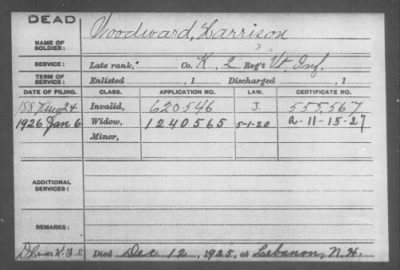 DEAD
NAME OF SOLDIER: Woodward, Harrison
SERVICE: Late rank, Co. K. 2 Reg't Vt. Inf.
TERM OF SERVICE: Enlisted , 1 Discharged , 1
DATE OF FILING. CLASS. APPLICATION NO. LAW. CERTIFICATE NO.
188 Aug 24 Invalid, 620546 J. 555,567
1926 Jan 6 Widow, 1240565 5-1-20 a-11-15-27
Minor,
ADDITIONAL SERVICES:
REMARKS:
Died Dec 12, 1925, at Lebanon, N.H.